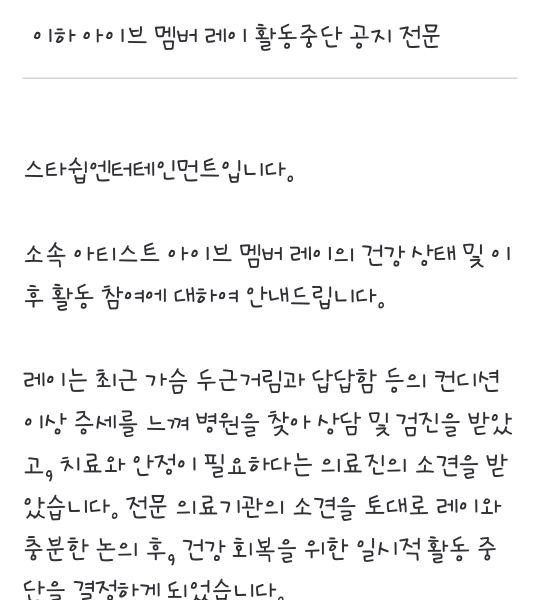 이하 아이브 멤버 레이 활동중단 공지 전문
스타쉽엔터테인먼트입니다.
소속 아티스트 아이브 멤버 레이의 건강 상태 및 이
후 활동 참여에 대하여 안내드립니다.
레이는 최근 가슴 두근거림과 답답함 등의 컨디션
이상 증세를 느껴 병원을 찾아 상담 및 검진을 받았
고, 치료와 안정이 필요하다는 의료진의 소견을 받
았습니다. 전문 의료기관의 소견을 토대로 레이와
충분한 논의 후, 건강 회복을 위한 일시적 활동 중
단을 결정하게 되었습니다.